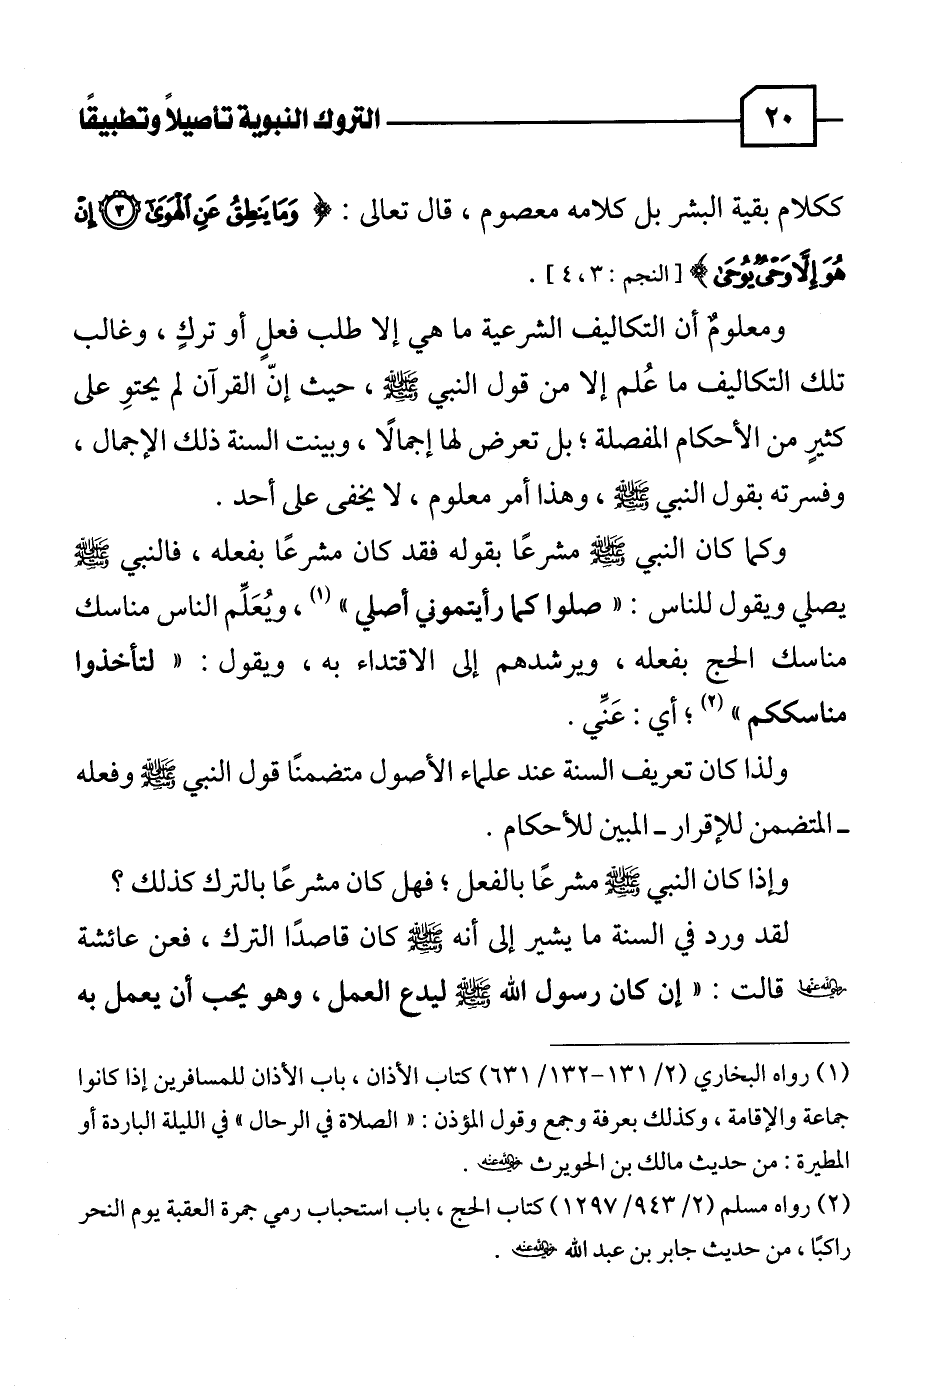 ٢٠ التروك النبوية تأصيلاً وتطبيقًا
ككلام بقية البشر بل كلامه معصوم ، قال تعالى : ﴿ وَمَا يَنطِقُ عَنِ ٱلْهَوَىٰٓ ٣ إِنْ
هُوَ إِلَّا وَحْىٌ يُوحَىٰ ﴾ [ النجم : ٣ ، ٤ ] .
ومعلومٌ أن التكاليف الشرعية ما هي إلا طلب فعلٍ أو تركٍ ، وغالب
تلك التكاليف ما عُلم إلا من قول النبي ﷺ ، حيث إنّ القرآن لم يحتوِ على
كثيرٍ من الأحكام المفصلة ؛ بل تعرض لها إجمالًا ، وبينت السنة ذلك الإجمال ،
وفسرته بقول النبي ﷺ ، وهذا أمر معلوم ، لا يخفى على أحد .
وكما كان النبي ﷺ مشرعًا بقوله فقد كان مشرعًا بفعله ، فالنبي ﷺ
يصلي ويقول للناس : « صلوا كما رأيتموني أصلي » (١) ، ويُعَلِّم الناس مناسك
مناسك الحج بفعله ، ويرشدهم إلى الاقتداء به ، ويقول : « لتأخذوا
مناسككم » (٢) ؛ أي : عَنِّي .
ولذا كان تعريف السنة عند علماء الأصول متضمنًا قول النبي ﷺ وفعله
ـ المتضمن للإقرار ـ المبين للأحكام .
وإذا كان النبي ﷺ مشرعًا بالفعل ؛ فهل كان مشرعًا بالترك كذلك ؟
لقد ورد في السنة ما يشير إلى أنه ﷺ كان قاصدًا الترك ، فعن عائشة
رضي الله عنها قالت : « إن كان رسول الله ﷺ ليدع العمل ، وهو يحب أن يعمل به
(١) رواه البخاري (٢/ ١٣١-١٣٢/ ٦٣١) كتاب الأذان ، باب الأذان للمسافرين إذا كانوا
جماعة والإقامة ، وكذلك بعرفة وجمع وقول المؤذن : « الصلاة في الرحال » في الليلة الباردة أو
المطيرة : من حديث مالك بن الحويرث رضي الله عنه .
(٢) رواه مسلم (٢/ ٩٤٣/ ١٢٩٧) كتاب الحج ، باب استحباب رمي جمرة العقبة يوم النحر
راكبًا ، من حديث جابر بن عبد الله رضي الله عنه .